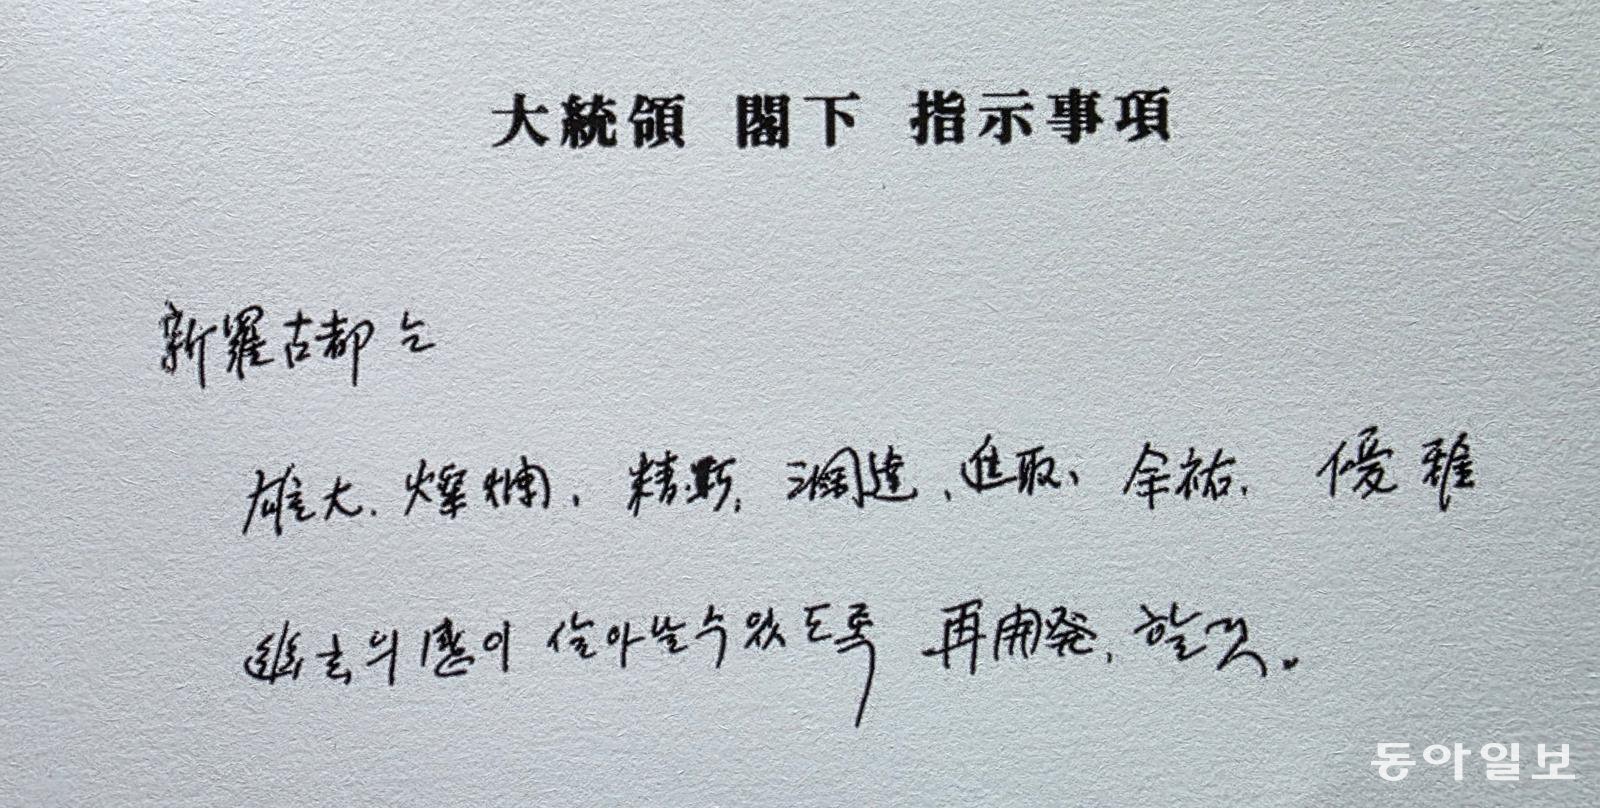 大統領 閣下 指示事項
新羅古都는
雄大. 燦爛. 精巧. 濶達. 進取. 余裕. 優雅
幽玄의 感이 살아날 수 있도록 再開発. 할것.
동아일보